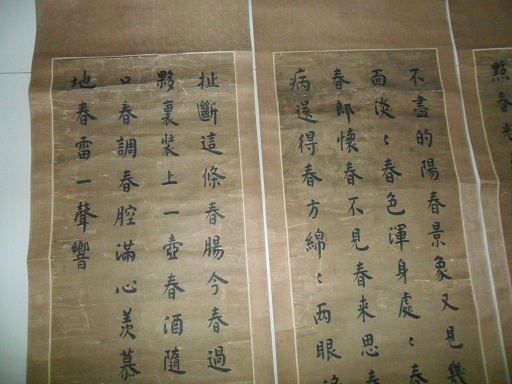 春
不盡的陽春景象又見幾
面淡〻春色渾身處〻春
春郎懷春不見春来思春
病還得春方綿〻兩眼
扯斷這條春腸今春過
夥裏裝上一壺春酒隨
口春調春腔滿心羨慕
地春雷一聲響